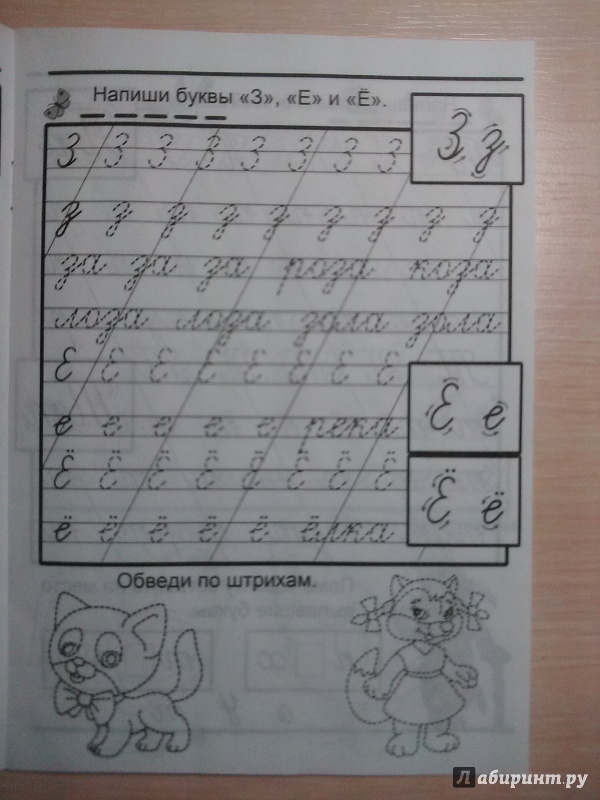 Напиши буквы «З», «Е» и «Ё».
З З З З З З З З
З з
з з з з з з з з з
за за за роза коза
лоза лоза зола зола
Е Е Е Е Е Е Е Е
Е е
е е е е е река
Ё Ё Ё Ё Ё Ё Ё Ё
Ё ё
ё ё ё ё ё ёлка
Обведи по штрихам.
Лабиринт.ру